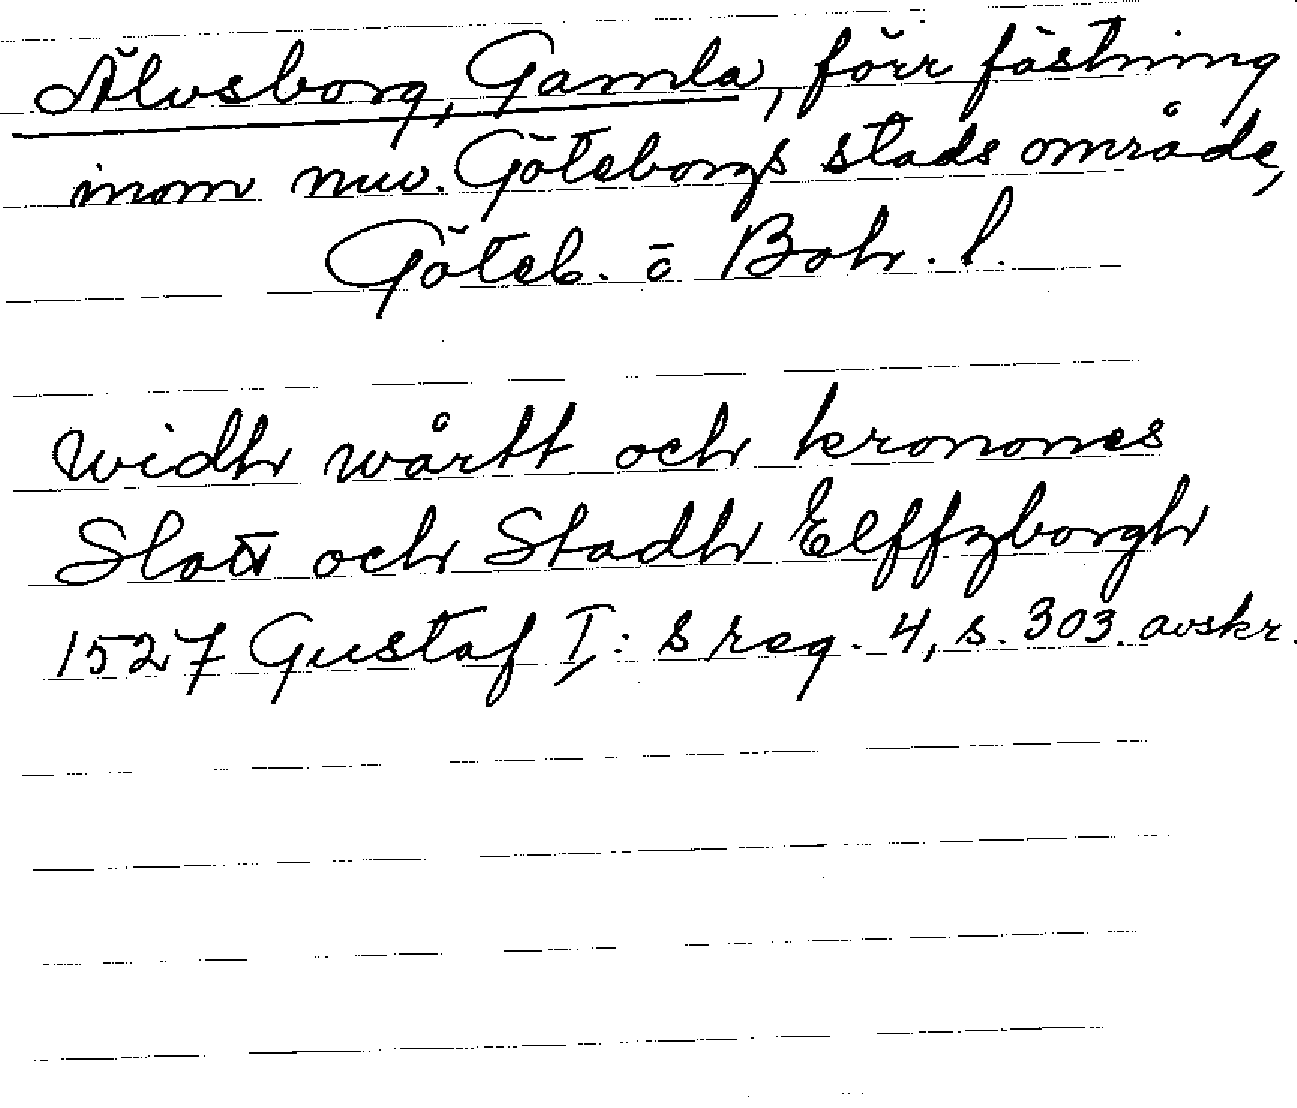 Älvsborg, Gamla, förr fästning
inom nuv. Göteborgs stads område,
Göteb. o Boh. l.
widh wårtt och kronones
Slott och Stadh Elffzborgh
1527 Gustaf I:s reg. 4, s. 303. avskr.